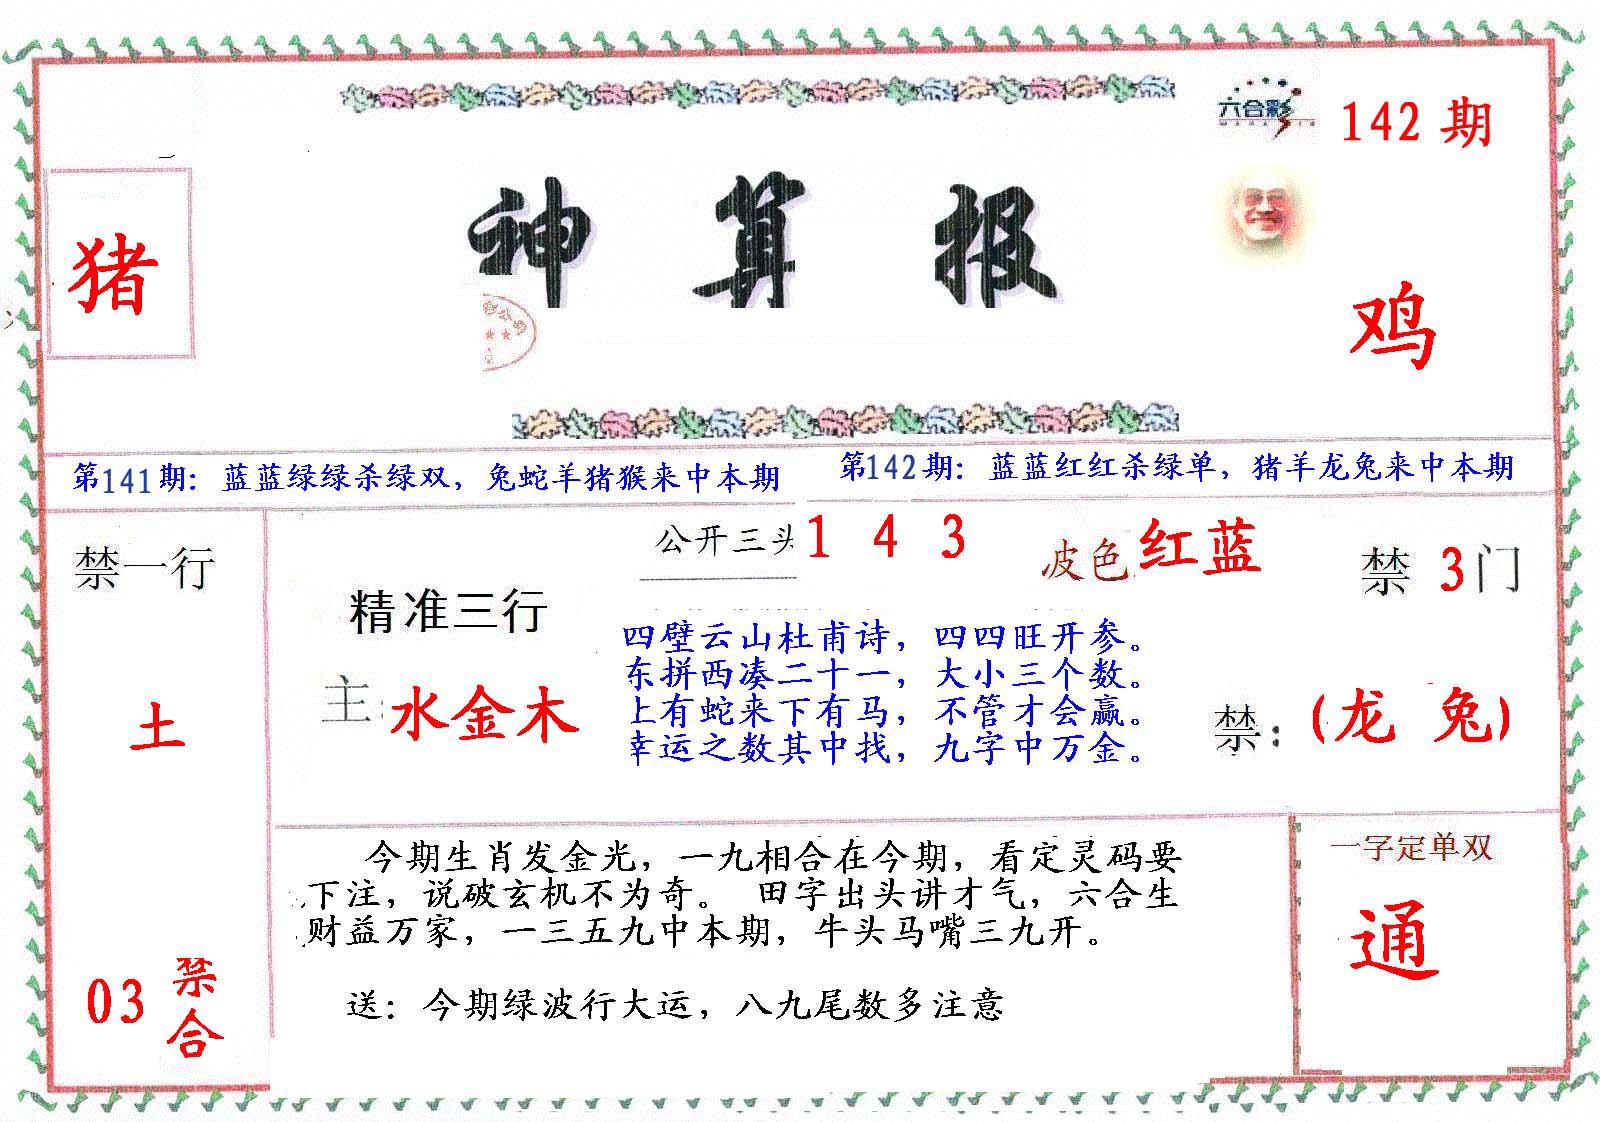 六合彩
142 期
猪
神 算 报
鸡
第141期：蓝蓝绿绿杀绿双，兔蛇羊猪猴来中本期
第142期：蓝蓝红红杀绿单，猪羊龙兔来中本期
禁一行
土
03 禁合
公开三头 1 4 3
波色 红蓝
禁 3 门
精准三行
主: 水金木
四壁云山杜甫诗，四四旺开参。
东拼西凑二十一，大小三个数。
上有蛇来下有马，不管才会赢。
幸运之数其中找，九字中万金。
禁: (龙 兔)
今期生肖发金光，一九相合在今期，看定灵码要
下注，说破玄机不为奇。 田字出头讲才气，六合生
财益万家，一三五九中本期，牛头马嘴三九开。
送：今期绿波行大运，八九尾数多注意
一字定单双
通